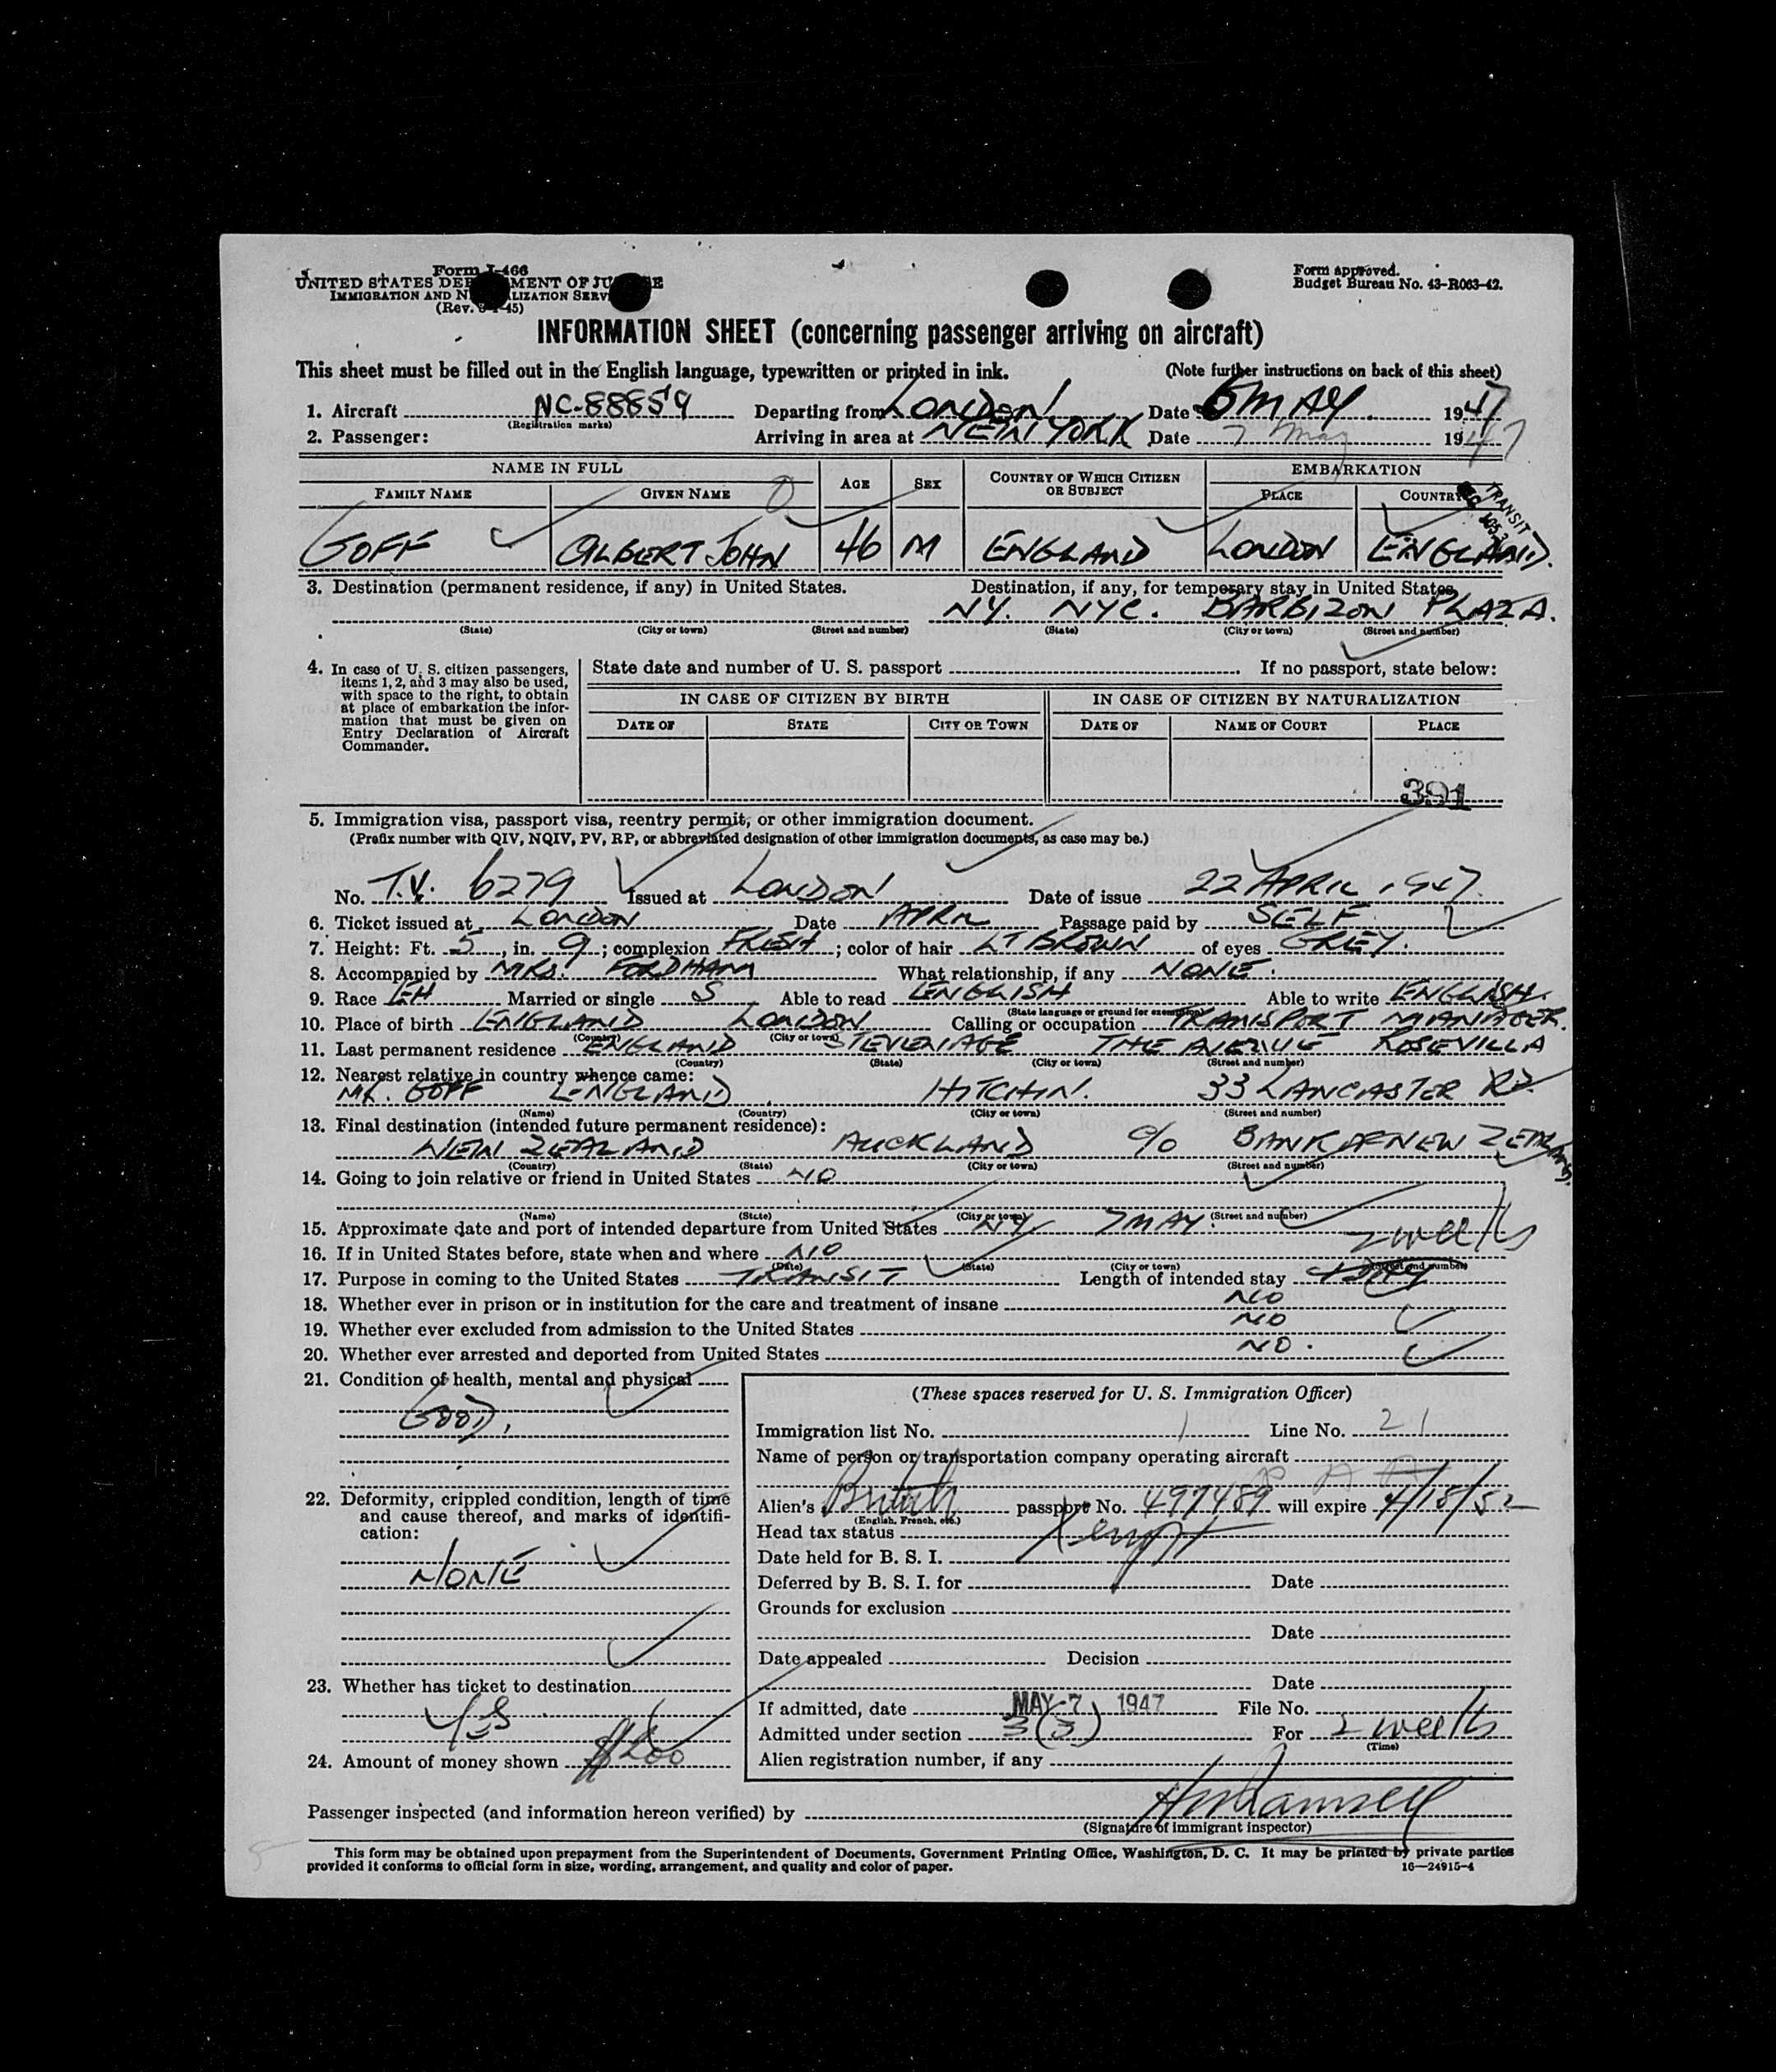 Form I-466
UNITED STATES DEPARTMENT OF JUSTICE
IMMIGRATION AND NATURALIZATION SERVICE
(Rev. 45)
Form approved.
Budget Bureau No. 43-R063-42.
INFORMATION SHEET (concerning passenger arriving on aircraft)
This sheet must be filled out in the English language, typewritten or printed in ink. (Note further instructions on back of this sheet)
1. Aircraft NC-88859 Departing from LONDON Date 6 MAY 1947
(Registration marks)
2. Passenger: Arriving in area at NEW YORK Date 7 May 1947
NAME IN FULL EMBARKATION
FAMILY NAME GIVEN NAME AGE SEX COUNTRY OF WHICH CITIZEN OR SUBJECT PLACE COUNTRY
TRANSIT
GOFF ALBERT JOHN 46 M ENGLAND LONDON ENGLAND.
3. Destination (permanent residence, if any) in United States. Destination, if any, for temporary stay in United States.
NY. NYC. BARBIZON PLAZA.
(State) (City or town) (Street and number) (State) (City or town) (Street and number)
4. In case of U. S. citizen passengers, items 1, 2, and 3 may also be used, with space to the right, to obtain at place of embarkation the information that must be given on Entry Declaration of Aircraft Commander.
State date and number of U. S. passport . If no passport, state below:
IN CASE OF CITIZEN BY BIRTH IN CASE OF CITIZEN BY NATURALIZATION
DATE OF STATE CITY OR TOWN DATE OF NAME OF COURT PLACE
391
5. Immigration visa, passport visa, reentry permit, or other immigration document.
(Prefix number with QIV, NQIV, PV, RP, or abbreviated designation of other immigration documents, as case may be.)
No. T.V. 6279 Issued at LONDON Date of issue 22 APRIL 1947.
6. Ticket issued at LONDON Date APRIL Passage paid by SELF
7. Height: Ft. 5, in. 9; complexion FRESH; color of hair LT BROWN of eyes GREY.
8. Accompanied by MRS. FORDHAM What relationship, if any NONE.
9. Race EH Married or single S Able to read ENGLISH Able to write ENGLISH.
(State language or ground for exemption)
10. Place of birth ENGLAND LONDON Calling or occupation TRANSPORT MANAGER.
(Country) (City or town)
11. Last permanent residence ENGLAND STEVENAGE THE AVENUE ROSEVILLA
(Country) (State) (City or town) (Street and number)
12. Nearest relative in country whence came:
MR. GOFF ENGLAND HITCHIN. 33 LANCASTER RD.
(Name) (Country) (City or town) (Street and number)
13. Final destination (intended future permanent residence):
NEW ZEALAND AUCKLAND c/o BANK OF NEW ZEALAND.
(Country) (State) (City or town) (Street and number)
14. Going to join relative or friend in United States NO
(Name) (State) (City or town) (Street and number)
15. Approximate date and port of intended departure from United States NY 7 MAY.
16. If in United States before, state when and where NO 2 weeks
(Date) (State) (City or town) (Street and number)
17. Purpose in coming to the United States TRANSIT Length of intended stay
18. Whether ever in prison or in institution for the care and treatment of insane NO
19. Whether ever excluded from admission to the United States NO
20. Whether ever arrested and deported from United States NO.
21. Condition of health, mental and physical
GOOD.
22. Deformity, crippled condition, length of time and cause thereof, and marks of identification:
NONE
23. Whether has ticket to destination
YES
24. Amount of money shown $200
(These spaces reserved for U. S. Immigration Officer)
Immigration list No. 1 Line No. 21
Name of person or transportation company operating aircraft
P A A
Alien's British passport No. 497489 will expire 4/18/52
(English, French, etc.)
Head tax status Exempt
Date held for B. S. I.
Deferred by B. S. I. for Date
Grounds for exclusion
Date
Date appealed Decision
Date
If admitted, date MAY-7 1947 File No.
Admitted under section 3(3) For 2 weeks
(Time)
Alien registration number, if any
Passenger inspected (and information hereon verified) by
(Signature of immigrant inspector)
This form may be obtained upon prepayment from the Superintendent of Documents, Government Printing Office, Washington, D. C. It may be printed by private parties
provided it conforms to official form in size, wording, arrangement, and quality and color of paper. 16—24915-4